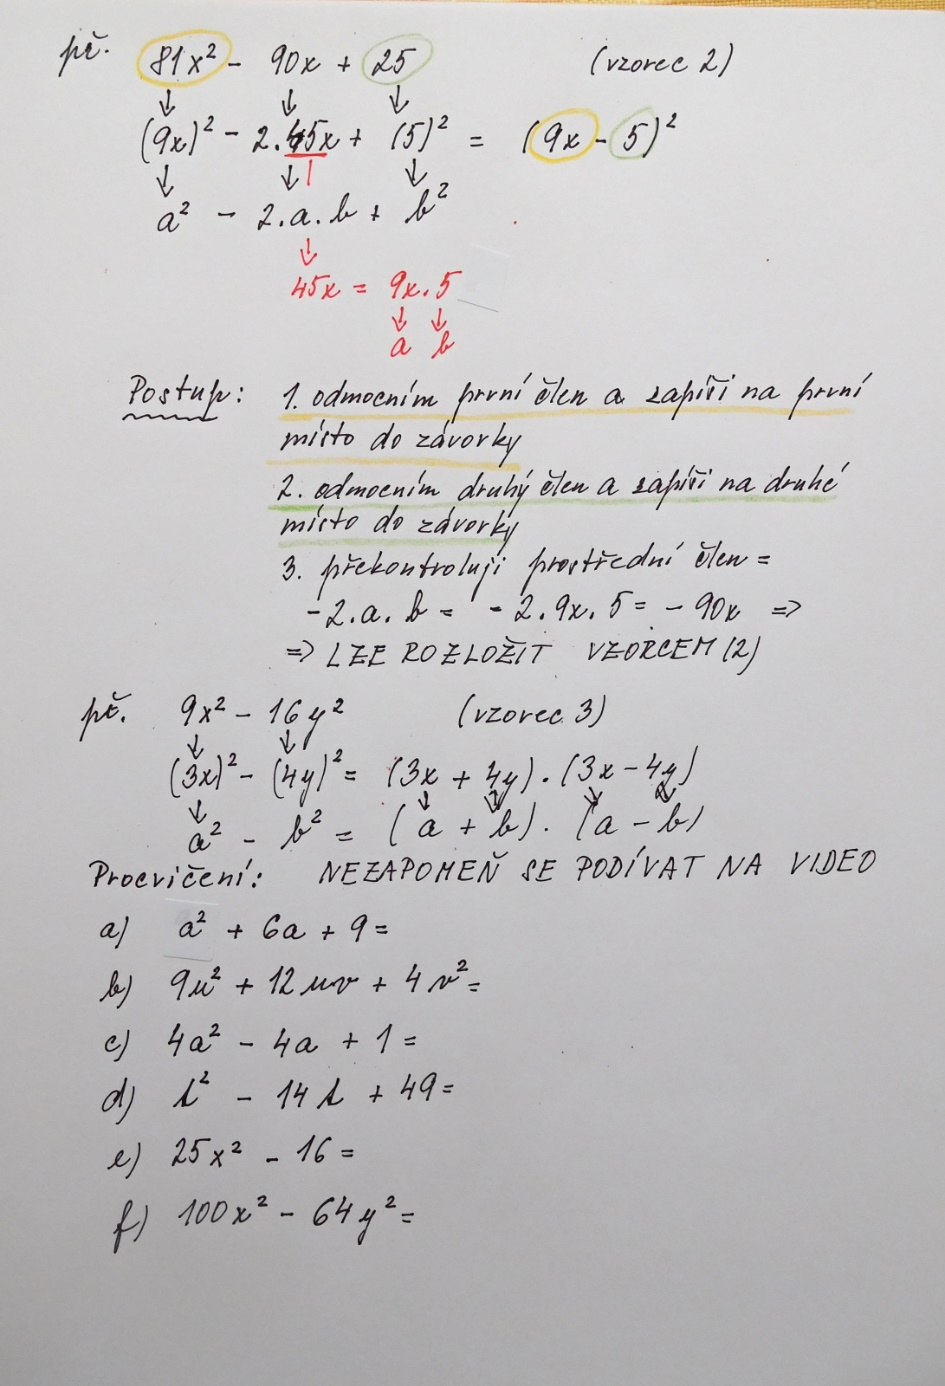 př. 81x² - 90x + 25 (vzorec 2)
↓ ↓ ↓
(9x)² - 2.45x + (5)² = (9x - 5)²
↓ ↓ ↓
a² - 2.a.b + b²
↓
45x = 9x.5
↓ ↓
a b
Postup: 1. odmocním první člen a zapíši na první
místo do závorky
2. odmocním druhý člen a zapíši na druhé
místo do závorky
3. překontroluji prostřední člen =
-2.a.b = -2.9x.5 = -90x =>
=> LZE ROZLOŽIT VZORCEM (2)
př. 9x² - 16y² (vzorec 3)
↓ ↓
(3x)² - (4y)² = (3x + 4y).(3x - 4y)
↓ ↓ ↓ ↓ ↓
a² - b² = (a + b).(a - b)
Procvičení: NEZAPOMEŇ SE PODÍVAT NA VIDEO
a) a² + 6a + 9 =
b) 9u² + 12uv + 4v² =
c) 4a² - 4a + 1 =
d) t² - 14t + 49 =
e) 25x² - 16 =
f) 100x² - 64y² =